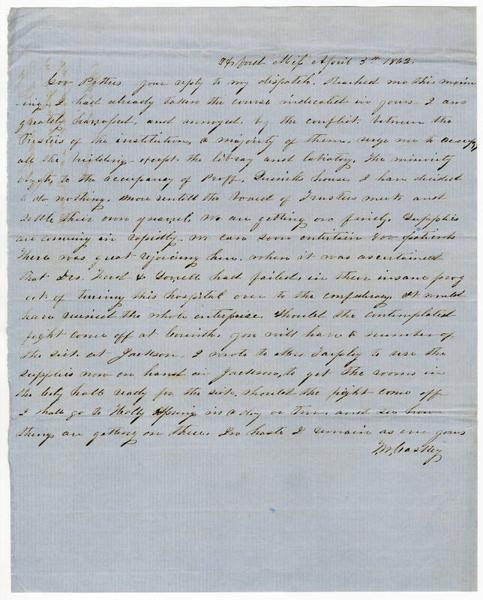 Oxford Miss April 3rd 1862.
Gov Pettus your reply to my dispatch. Reached me this morn
ing. I had already taken the course indicated in yours. I am
greatly harassed, and annoyed by the conflict between the
Trustees of the institution, a majority of them urge me to accept
all the building except the library and labratory. The minority
object to the occupancy of Proff. house I have decided
to do nothing more untill the Board of Trustees meet and
settle their own quarrel. We are getting on finely. Supplies
are coming in rapidly. We can soon entertain 200 patients
There was great rejoicing here when it was ascertained
that Drs. & had failed in their insane proj
ect of turning this hospital over to the confederacy. It would
have ruined the whole enterprise. Should the contemplated
fight come off at Corinth, you will have a number of
the sick at Jackson. I wrote to Mrs Tarpley to use the
supplies now on hand in Jackson, to get the rooms in
the City hall ready for the sick, should the fight come off
I shall go to Holly Spring in a day or two, and see how
things are getting on there. In haste I remain as ever yours